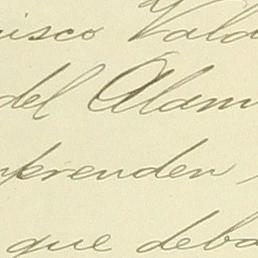 isco Vald
del Alam
mprenden
que deba